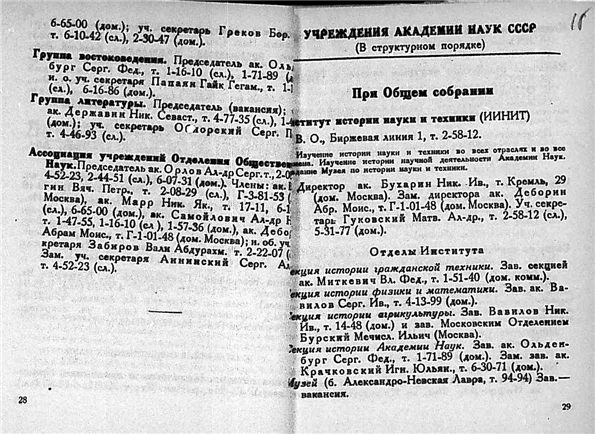 6-65-00 (дом.); уч. секретарь Греков Бор.
т. 6-10-42 (сл.), 2-30-47 (дом.).
Группа востоковедения. Председатель ак. Оль
бург Серг. Фед., т. 1-16-10 (сл.), 1-71-89
и. о. уч. секретаря Папаян Гайк Гегам., т. 1-1
(сл.), 6-16-86 (дом.).
Группа литературы. Председатель (вакансия);
ак. Державин Ник. Севаст., т. 4-77-35 (сл.),
(дом.); уч. секретарь Серг.
т. 4-46-93 (сл.).
Ассоциация учреждений Отделения Обществен
Наук. Председатель ак. Орлов Ал-др Серг. т., 2-0
4-52-23, 2-44-51 (сл.), 6-07-31 (дом.). Члены: ак.
гин Вяч. Петр., т. 2-08-29 (сл.), Г-3-81-53
Москва), ак. Марр Ник. Як., т. 17-11, 6-1
(сл.), 6-65-00 (дом.), ак. Самойлович Ал-др
т. 1-47-55, 1-16-10 (сл), 1-57-36 (дом.), ак. Дебо
Абрам Моис., т. Г-1-01-48 (дом. Москва); и. об. уч.
кретаря Забиров Вали Абдурахм. т. 2-22-07
Зам. уч. секретаря Аннинский Серг. Ал
т. 4-52-23 (сл.).
28
УЧРЕЖДЕНИЯ АКАДЕМИИ НАУК СССР
(В структурном порядке)
При Общем собрании
ститут истории науки и техники (ИИНИТ)
В. О., Биржевая линия 1, т. 2-58-12.
Изучение истории науки и техники во всех отраслях и во все
мена. Изучение истории научной деятельности Академии Наук.
дание Музея по истории науки и техники.
Директор ак. Бухарин Ник. Ив., т. Кремль, 29
(дом. Москва). Зам. директора ак. Деборин
Абр. Моис., т. Г-1-01-48 (дом. Москва). Уч. секре-
тарь Гуковский Матв. Ал-др., т. 2-58-12 (сл.),
5-31-77 (дом.).
Отделы Института
екция истории гражданской техники. Зав. секцией
ак. Миткевич Вл. Фед., т. 1-51-40 (дом. комм.).
екция истории физики и математики. Зав. ак. Ва-
вилов Серг. Ив., т. 4-13-99 (дом.).
екция истории агрикультуры. Зав. Вавилов Ник.
Ив., т. 14-48 (дом.) и зав. Московским Отделением
Бурский Мечисл. Ильич (Москва).
екция истории Академии Наук. Зав. ак. Ольден-
бург Серг. Фед., т. 1-71-89 (дом.). Зам. зав. ак.
Крачковский Игн. Юльян., т. 6-30-71 (дом.).
Музей (б. Александро-Невская Лавра, т. 94-94) Зав.—
вакансия.
29